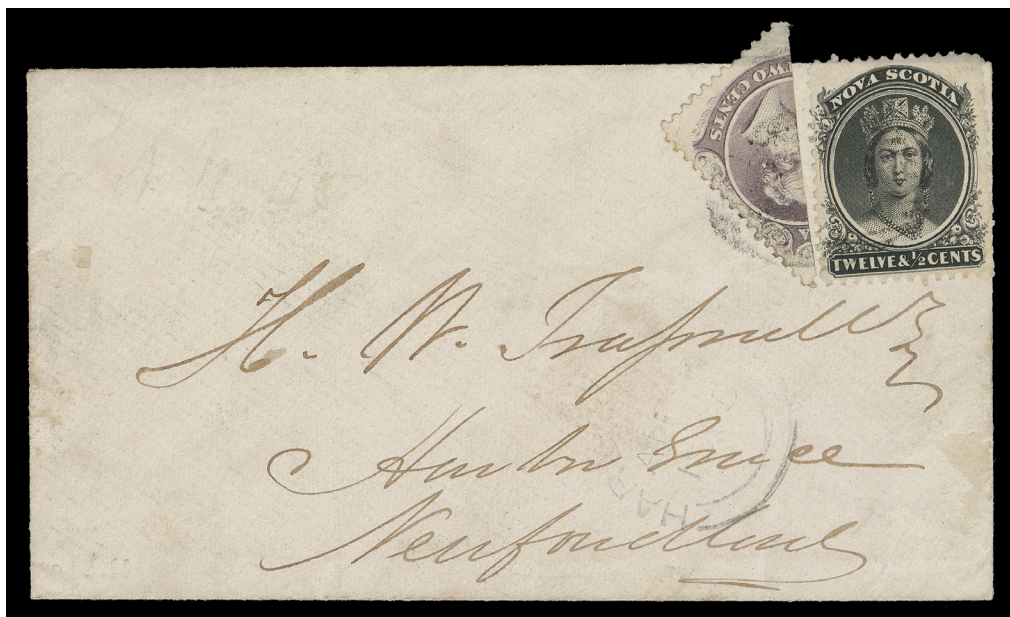 WO CENTS
NOVA SCOTIA
TWELVE & ½ CENTS
H. W. Trapnell
Harbor Grace
Newfoundland
HAR